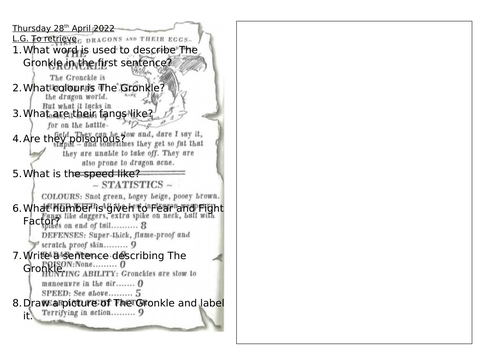 Thursday 28th April 2022
L.G. To retrieve
VIKING DRAGONS AND THEIR EGGS
1. What word is used to describe The
Gronkle in the first sentence?
THE
GRONCKLE
The Gronckle is
the dragon world.
2. What colour is The Gronkle?
But what it lacks in
3. What are their fangs like?
for on the battle-
field. They can be slow and, dare I say it,
4. Are they poisonous?
stupid – and sometimes they get so fat that
they are unable to take off. They are
also prone to dragon acne.
5. What is the speed like?
~ STATISTICS ~
COLOURS: Snot green, bogey beige, pooey brown.
6. What number is given to Fear and Fight
Fangs like daggers, extra spike on neck, ball with
Factor?
spikes on end of tail......... 8
DEFENSES: Super-thick, flame-proof and
scratch proof skin......... 9
7. Write a sentence describing The
Gronkle.
POISON: None......... 0
HUNTING ABILITY: Gronckles are slow to
manoeuvre in the air...... 0
SPEED: See above......... 5
8. Draw a picture of The Gronkle and label
it.
Terrifying in action......... 9